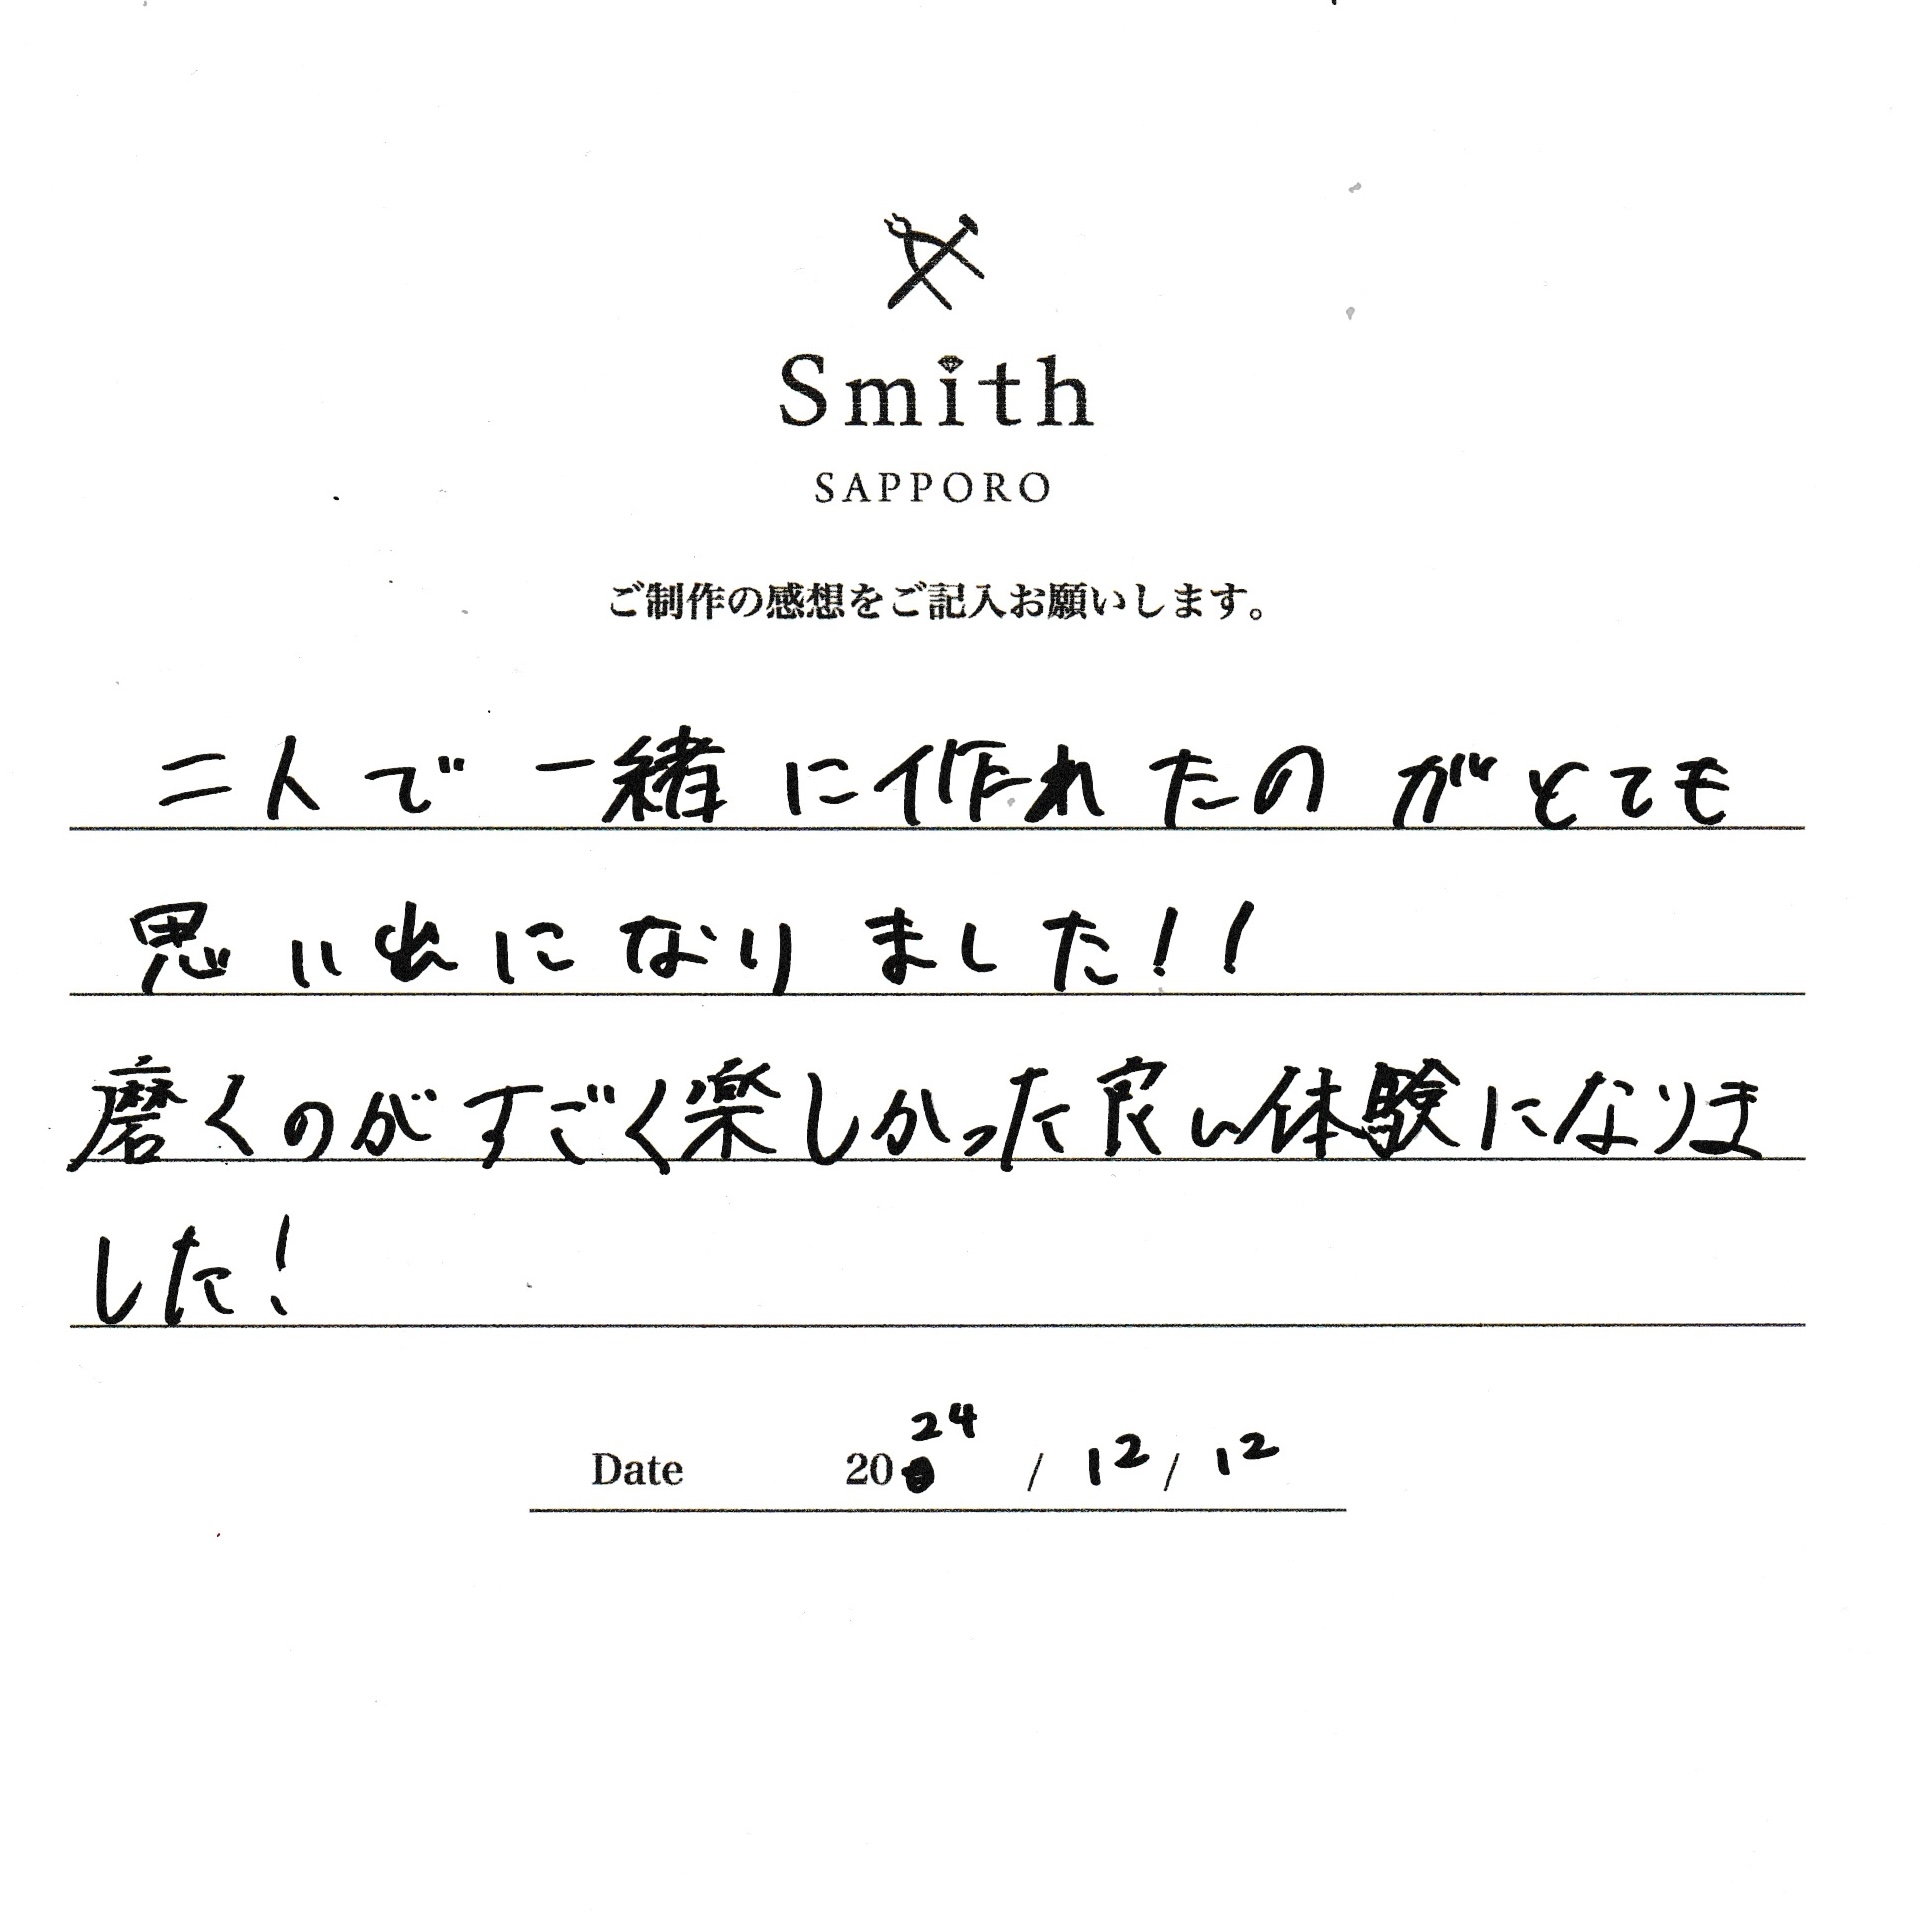 Smith
SAPPORO
ご制作の感想をご記入お願いします。
二人で一緒に作れたのがとても
思い出になりました!!
磨くのがすごく楽しかった良い体験になりま
した!
Date 2024 / 12 / 12